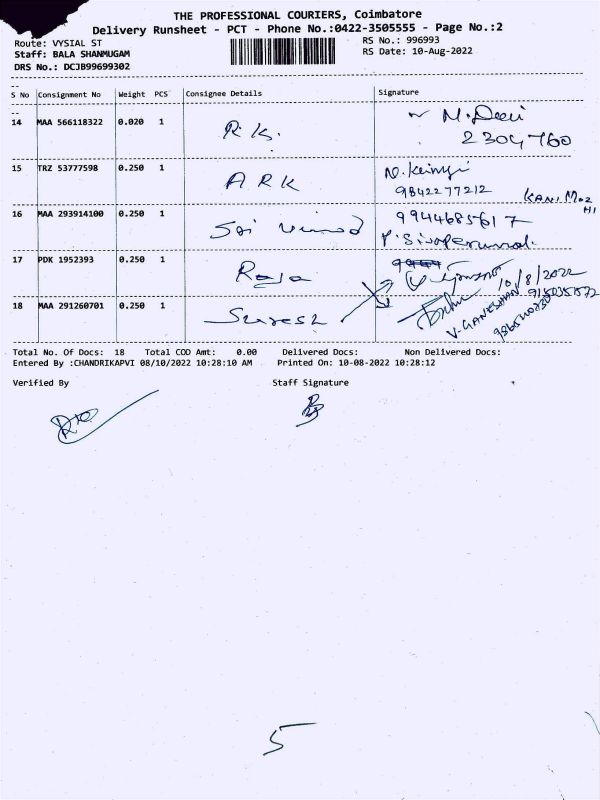 THE PROFESSIONAL COURIERS, Coimbatore
Delivery Runsheet - PCT - Phone No.:0422-3505555 - Page No.:2
Route: VYSIAL ST
Staff: BALA SHANMUGAM
DRS No.: DCJB99699302
RS No.: 996993
RS Date: 10-Aug-2022
S No Consignment No Weight PCS Consignee Details Signature
14 MAA 566118322 0.020 1 R.K. N.Devi
2304760
15 TRZ 53777598 0.250 1 ARK
9842277212
KANI MOZHI
16 MAA 293914100 0.250 1 Sai Vinod 9944685617
P. Sivaperumal.
17 PDK 1952393 0.250 1 Raja
10/8/2022
18 MAA 291260701 0.250 1 Suresh
V-GANESHAN
Total No. Of Docs: 18 Total COD Amt: 0.00 Delivered Docs: Non Delivered Docs:
Entered By :CHANDRIKAPVI 08/10/2022 10:28:10 AM Printed On: 10-08-2022 10:28:12
Verified By Staff Signature
5